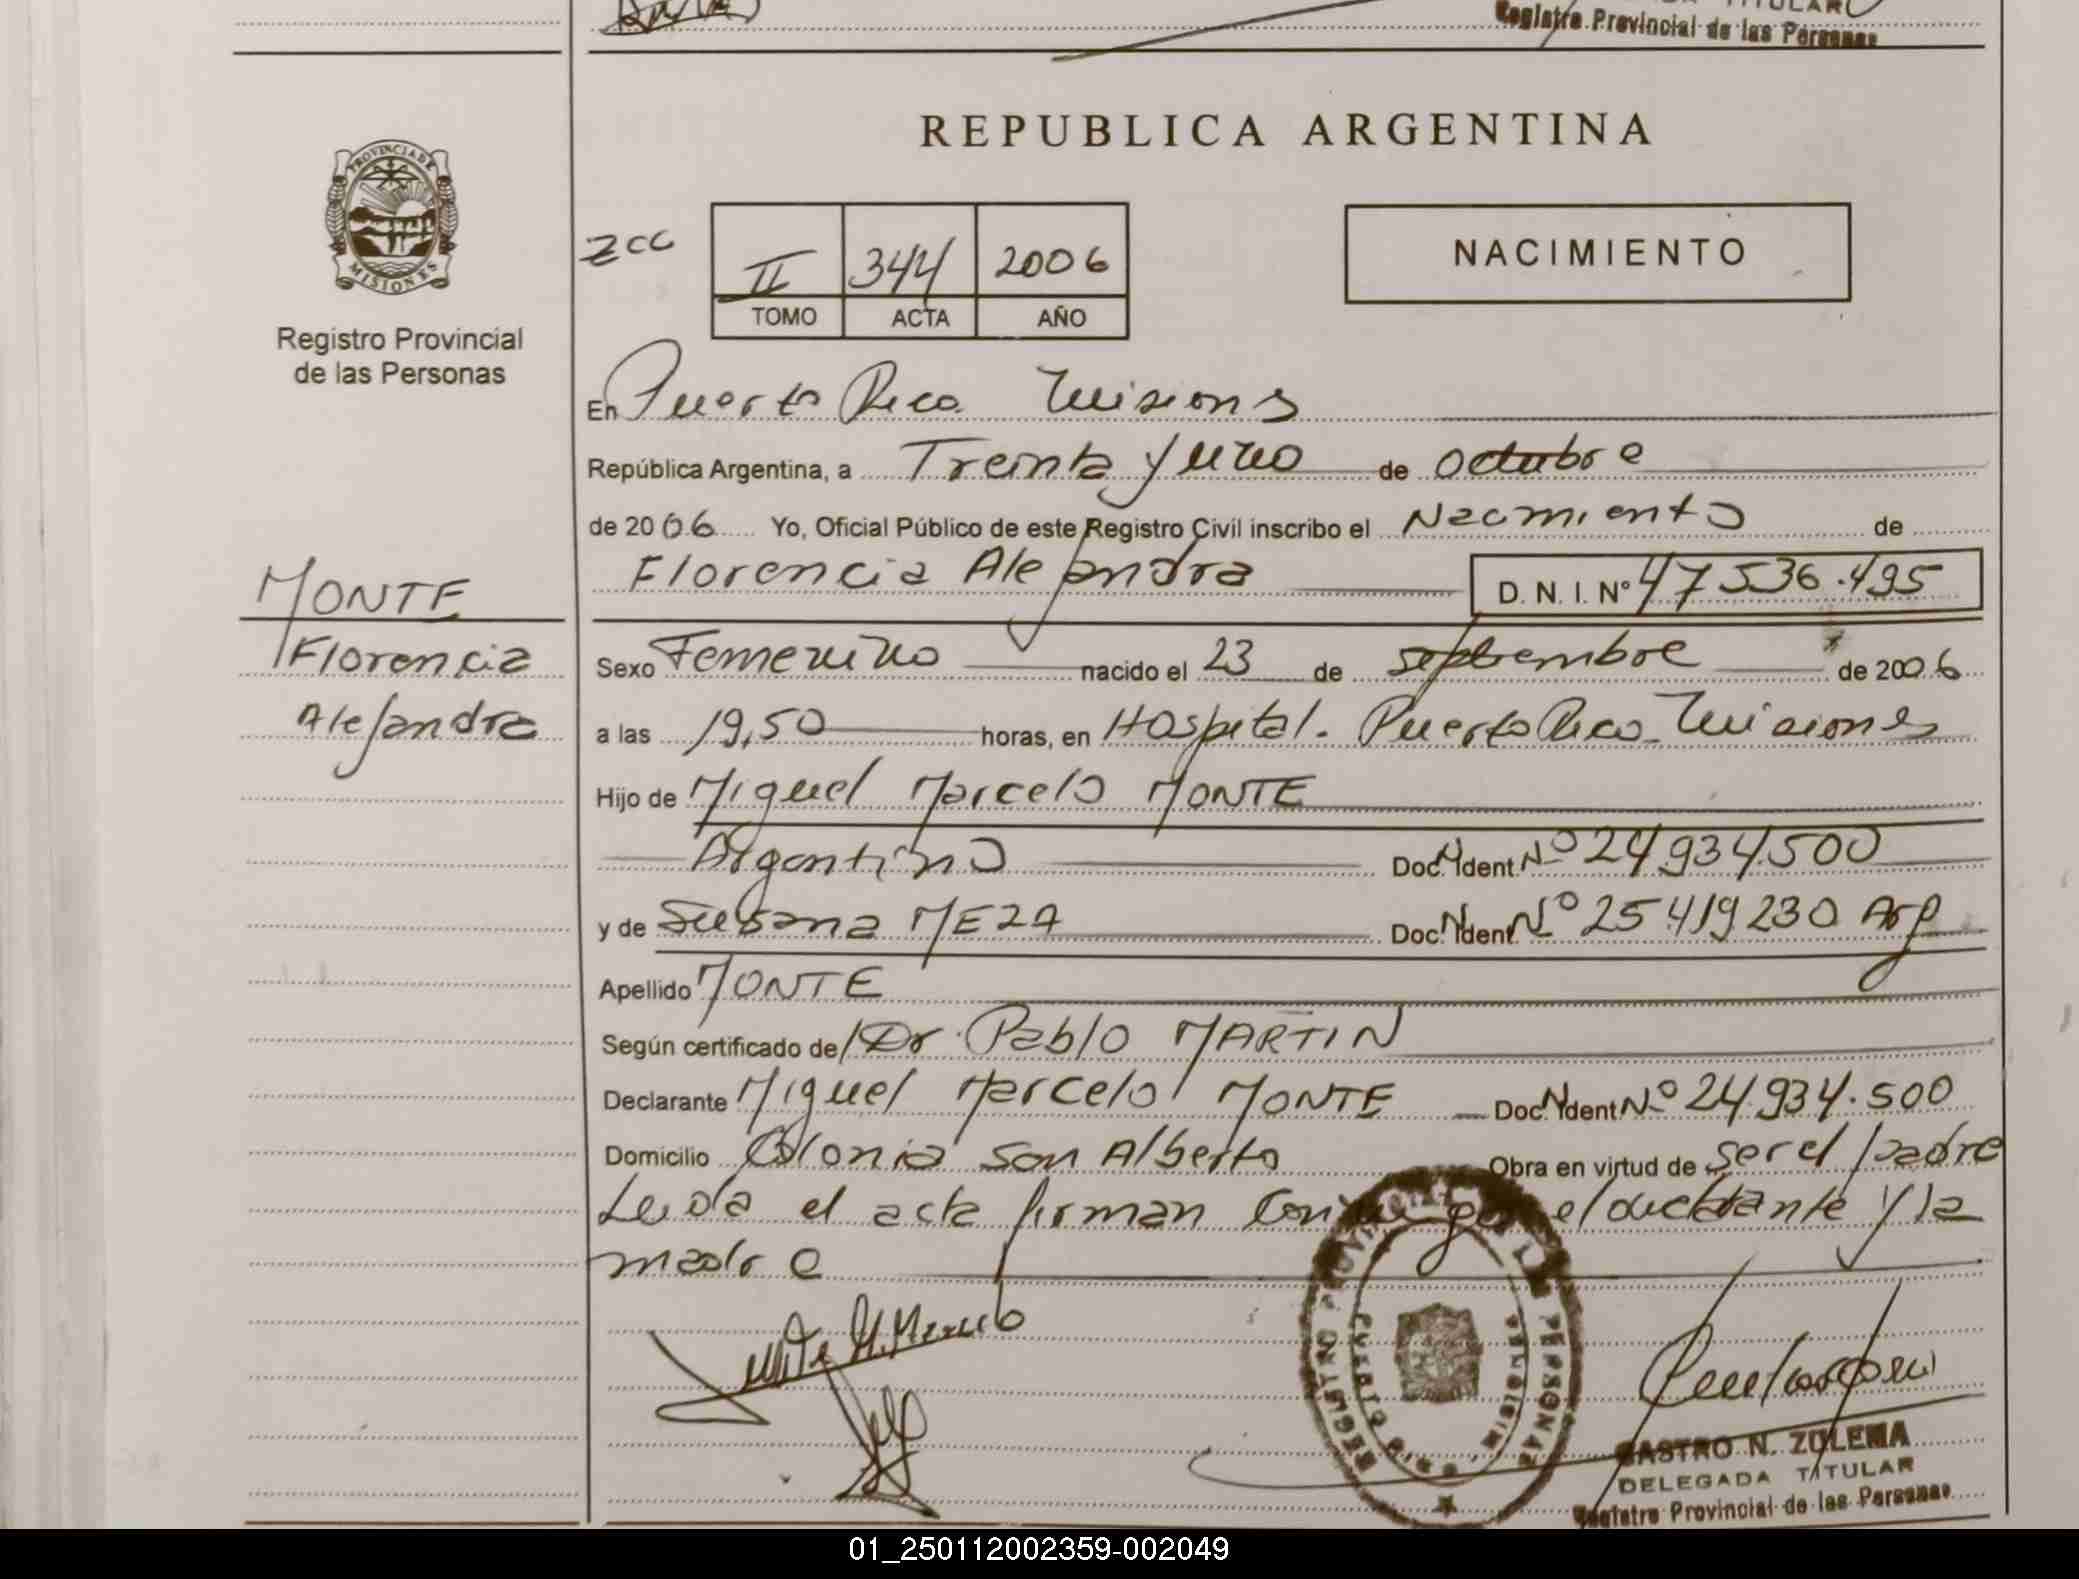 TITULAR
Registro Provincial de las Personas
REPUBLICA ARGENTINA
PROVINCIA DE
MISIONES
Registro Provincial
de las Personas
II 344 2006
TOMO ACTA AÑO
NACIMIENTO
En Puerto Rico Misiones
República Argentina, a Treinta y uno de octubre
de 2006 Yo, Oficial Público de este Registro Civil inscribo el Nacimiento de
Florencia Alejandra D. N. I. Nº 47536.495
MONTE
Florencia
Alejandra
Sexo Femenino nacido el 23 de septiembre de 2006
a las 19,50 horas, en Hospital. Puerto Rico Misiones
Hijo de Miguel Marcelo MONTE
Argentino Doc. N Ident Nº 24.934.500
y de Susana MEZA Doc. N Ident Nº 25.419230 Arg
Apellido MONTE
Según certificado de Dr. Pablo MARTIN
Declarante Miguel Marcelo MONTE Doc. N Ident Nº 24.934.500
Domicilio Colonia San Alberto Obra en virtud de ser el padre
Leida el acta firman Conmigo el declarante y la
madre
REGISTRO PROVINCIAL DE LAS PERSONAS
CASTRO N. ZULEMA
DELEGADA TITULAR
Registro Provincial de las Personas
01_250112002359-002049